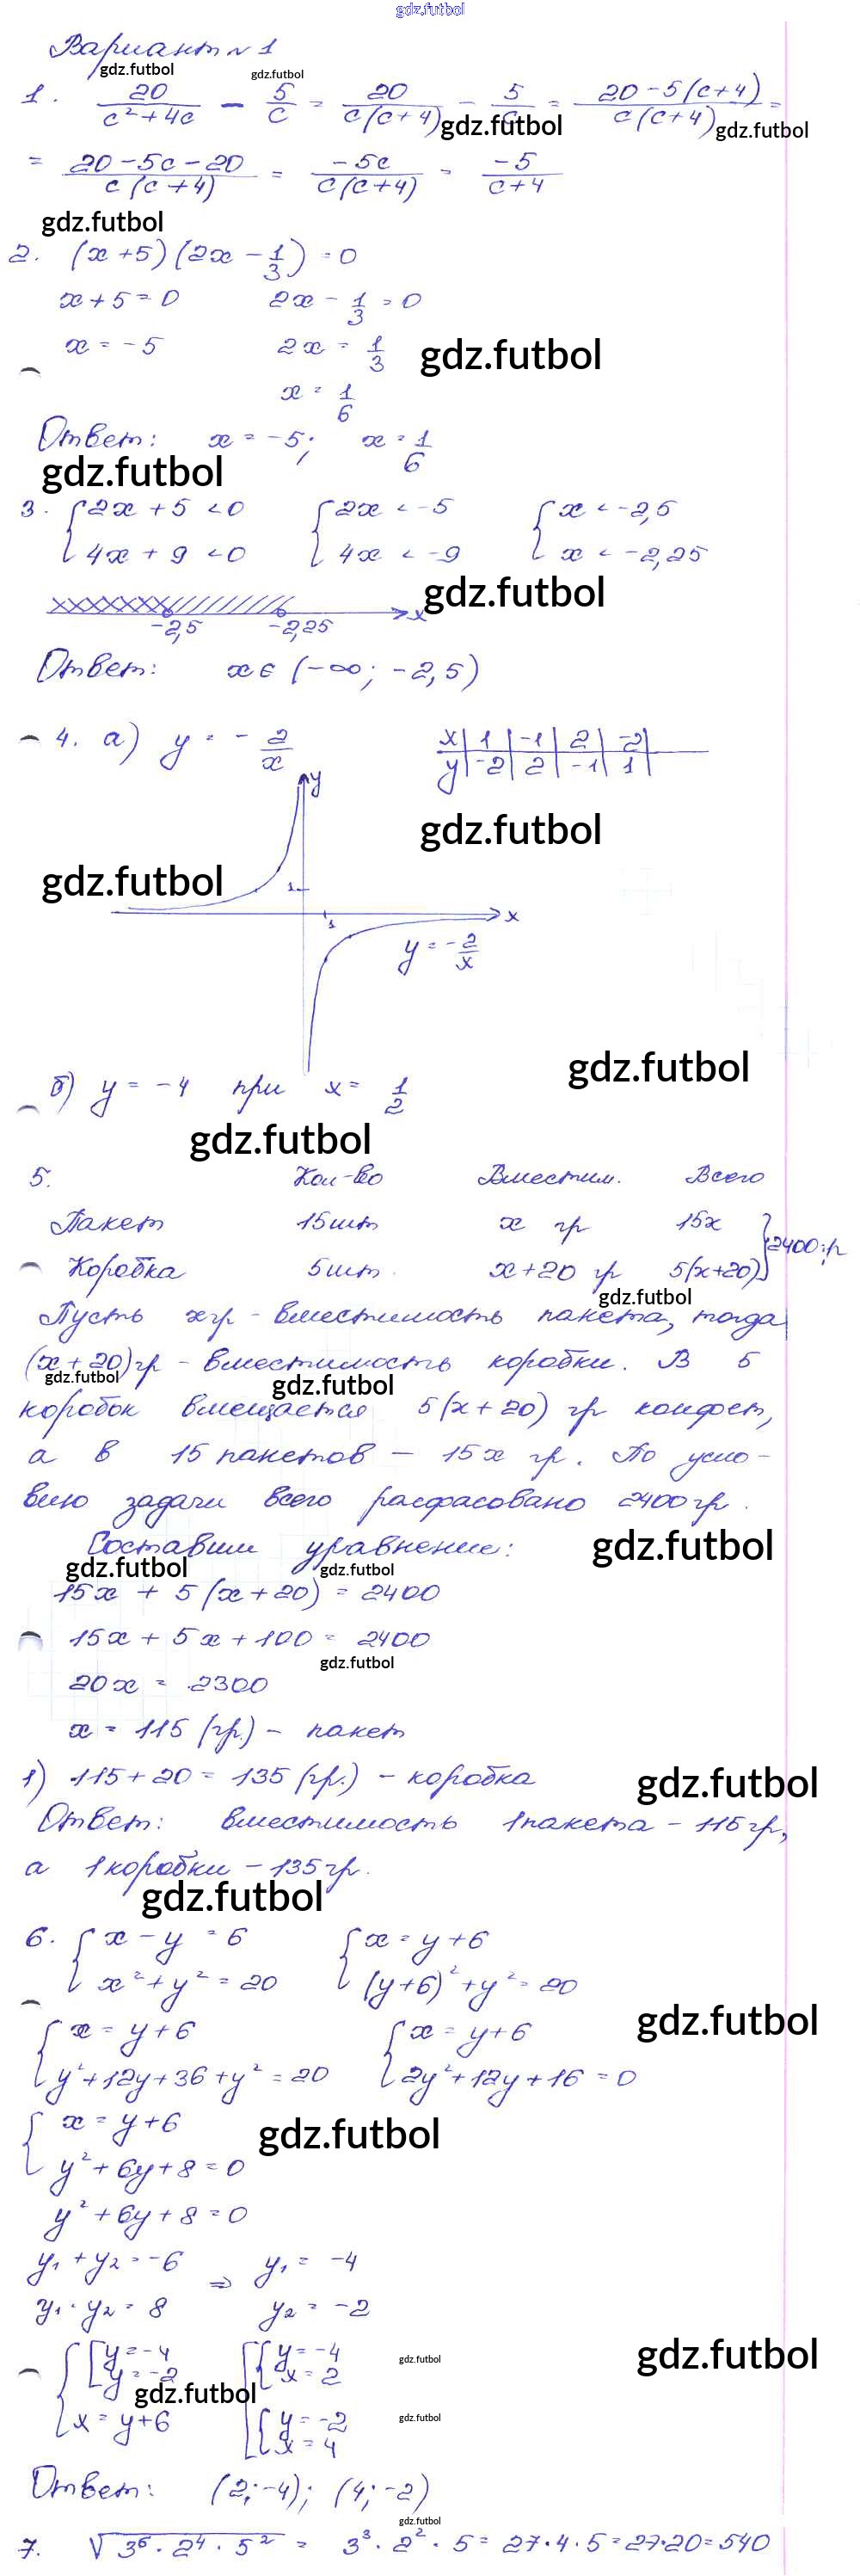 gdz.futbol
Вариант № 1
gdz.futbol gdz.futbol
1. 20/(c²+4c) − 5/c = 20/(c(c+4)) − 5/c = (20−5(c+4))/(c(c+4)) =
gdz.futbol gdz.futbol
= (20−5c−20)/(c(c+4)) = −5c/(c(c+4)) = −5/(c+4)
gdz.futbol
2. (x+5)(2x − 1/3) = 0
x+5=0 2x − 1/3 = 0
x = −5 2x = 1/3 gdz.futbol
x = 1/6
Ответ: x = −5; x = 1/6
gdz.futbol
3. { 2x + 5 < 0 { 2x < −5 { x < −2,5
4x + 9 < 0 4x < −9 x < −2,25
gdz.futbol
x
−2,5 −2,25
Ответ: x ∈ (−∞; −2,5)
4. а) y = − 2/x
x | 1 | −1 | 2 | −2 |
y | −2 | 2 | −1 | 1 |
y
gdz.futbol
gdz.futbol
1
x
1
y = −2/x
gdz.futbol
б) y = −4 при x = 1/2
gdz.futbol
5. Кол-во Вместим. Всего
Пакет 15шт x гр 15x
} 2400 гр
Коробка 5шт. x+20 гр 5(x+20)
gdz.futbol
Пусть x гр − вместимость пакета, тогда
(x+20) гр − вместимость коробки. В 5
gdz.futbol gdz.futbol
коробок вмещается 5(x+20) гр конфет,
а в 15 пакетов − 15x гр. По усло-
вию задачи всего расфасовано 2400 гр.
Составим уравнение: gdz.futbol
gdz.futbol gdz.futbol
15x + 5(x+20) = 2400
15x + 5x + 100 = 2400
gdz.futbol
20x = 2300
x = 115 (гр.) − пакет
1) 115+20 = 135 (гр.) − коробка gdz.futbol
Ответ: вместимость 1 пакета − 115 гр,
а 1 коробки − 135 гр.
gdz.futbol
6. { x − y = 6 { x = y+6
x² + y² = 20 (y+6)² + y² = 20
gdz.futbol
{ x = y+6 { x = y+6
y²+12y+36+y² = 20 2y²+12y+16 = 0
{ x = y+6 gdz.futbol
y²+6y+8=0
y²+6y+8=0
y₁ + y₂ = −6 ⇒ y₁ = −4
y₁ · y₂ = 8 y₂ = −2
{ [ y = −4 [ { y = −4 gdz.futbol gdz.futbol
y = −2 x = 2
gdz.futbol
x = y+6 { y = −2 gdz.futbol
x = 4
Ответ: (2; −4); (4; −2)
gdz.futbol
7. √(3⁶ · 2⁴ · 5²) = 3³ · 2² · 5 = 27·4·5 = 27·20 = 540